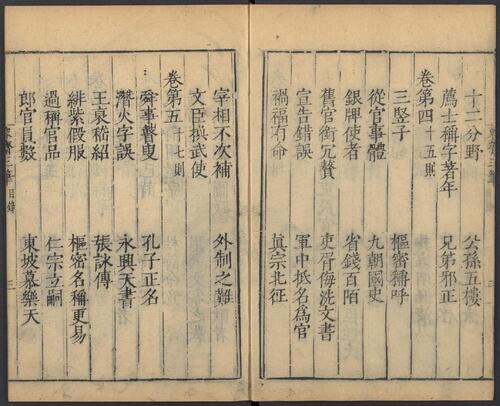 十二分野　公孫五樓
薦士稱字著年　兄弟邪正
卷第四十五則
三豎子　樞密稱呼
從官事體　九朝國史
銀牌使者　省錢百陌
舊官銜冗贅　吏胥侮洗文書
宣告錯誤　軍中抵名爲官
禍福有命　真宗北征
宰相不次補　外制之難
文臣換武使
卷第五十七則
舜事瞽叟　孔子正名
潛火字誤　永興天書
王裒嵇紹　張詠傳
緋紫假服　樞密名稱更易
過稱官品　仁宗立嗣
郎官員數　東坡慕樂天
三筆　目錄　三